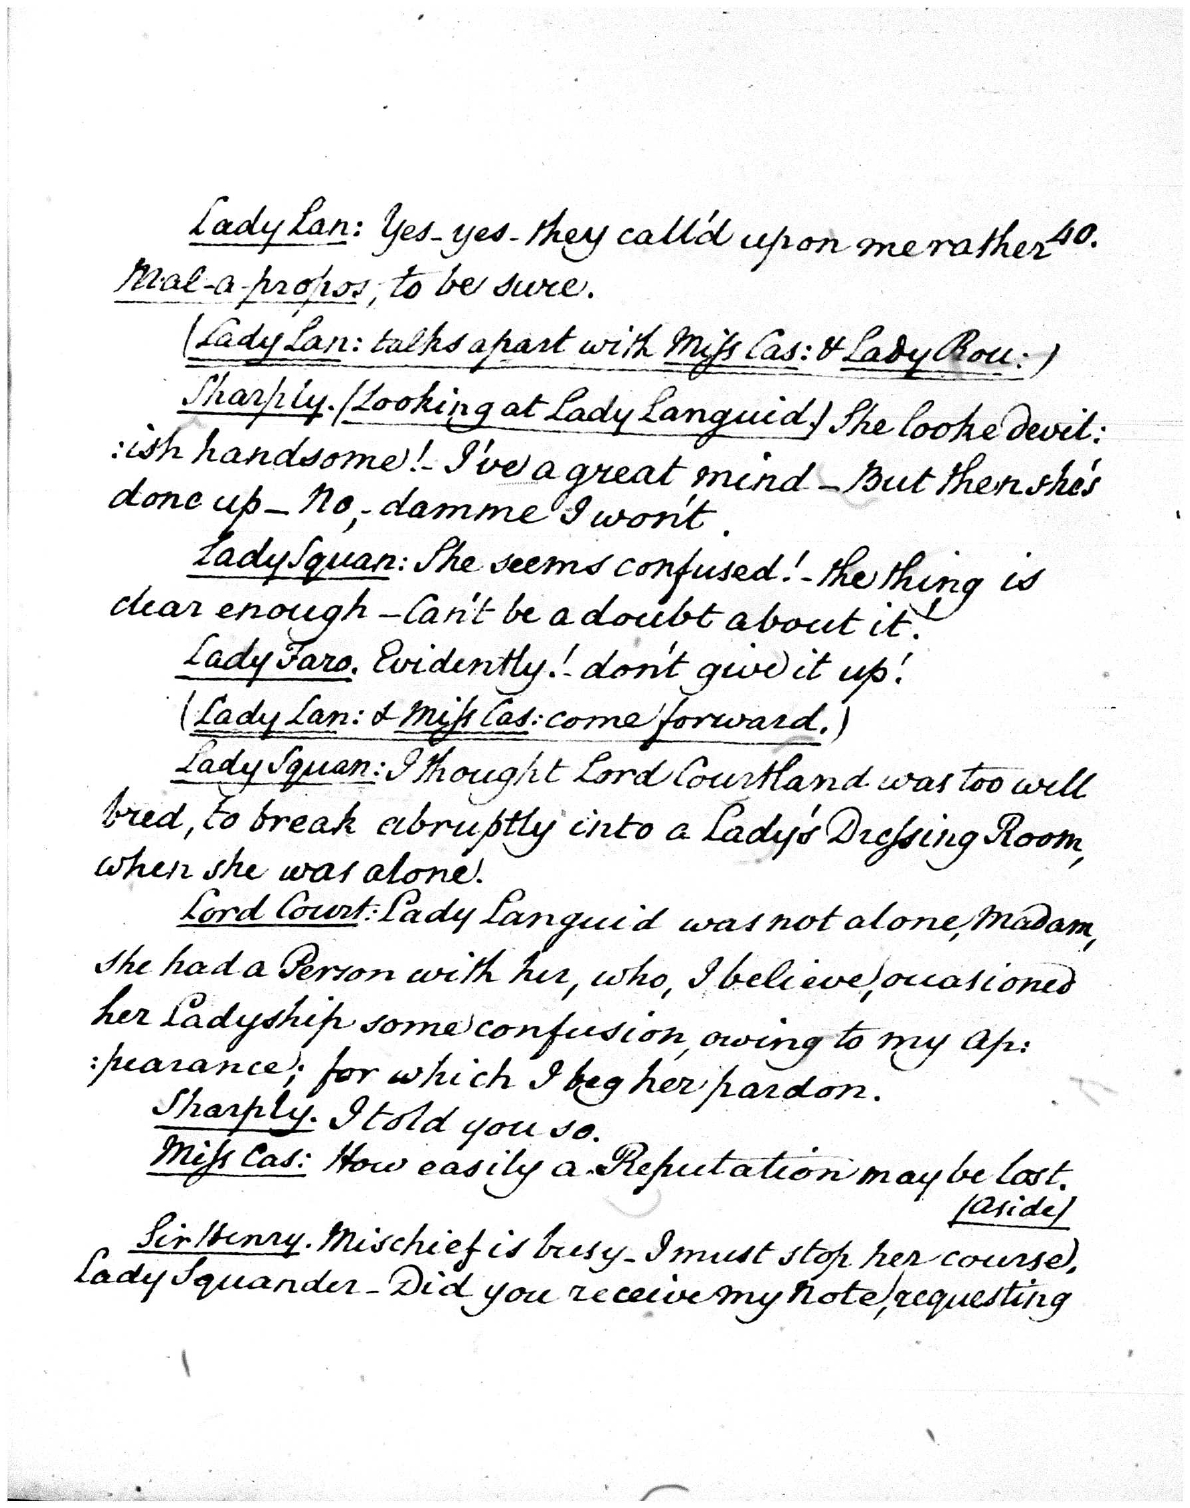 40.
Lady Lan: Yes - yes - they call'd upon me rather
Mal-a-propos, to be sure.
(Lady Lan: talks apart with Miss Cas: & Lady Rou:)
Sharply. (Looking at Lady Languid) She looks devil:
:ish handsome! - I've a great mind - But then she's
done up - No, - damme I won't.
Lady Squan: She seems confused! - the thing is
clear enough - Can't be a doubt about it!
Lady Faro. Evidently! - don't give it up!
(Lady Lan: & Miss Cas: come forward.)
Lady Squan: I thought Lord Courtland was too well
bred, to break abruptly into a Lady's Dressing Room,
when she was alone.
Lord Court: Lady Languid was not alone, Madam,
she had a Person with her, who, I believe, occasioned
her Ladyship some confusion, owing to my Ap:
:pearance; for which I beg her pardon.
Sharply. I told you so.
Miss Cas: How easily a Reputation may be lost.
(Aside)
Sir Henry. Mischief is busy - I must stop her course.
Lady Squander - Did you receive my Note, requesting